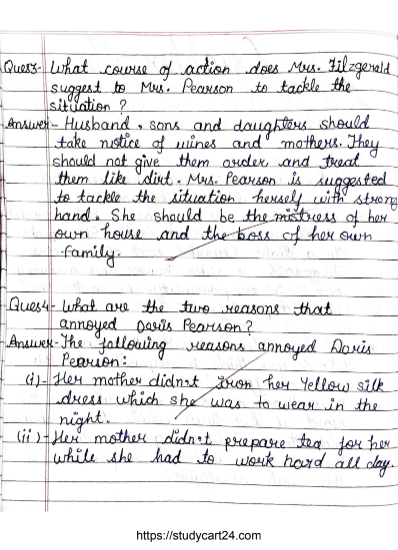 Ques3- What course of action does Mrs. Fitzgerald
suggest to Mrs. Pearson to tackle the
situation ?
Answer - Husband, sons and daughters should
take notice of wines and mothers. They
should not give them order and treat
them like dirt. Mrs. Pearson is suggested
to tackle the situation herself with strong
hand. She should be the mistress of her
own house and the boss of her own
family.
Ques4- What are the two reasons that
annoyed Doris Pearson?
Answer- The following reasons annoyed Doris
Pearson:
(i)- Her mother didn't iron her Yellow silk
dress which she was to wear in the
night.
(ii)- Her mother didn't prepare tea for her
while she had to work hard all day.
https://studycart24.com